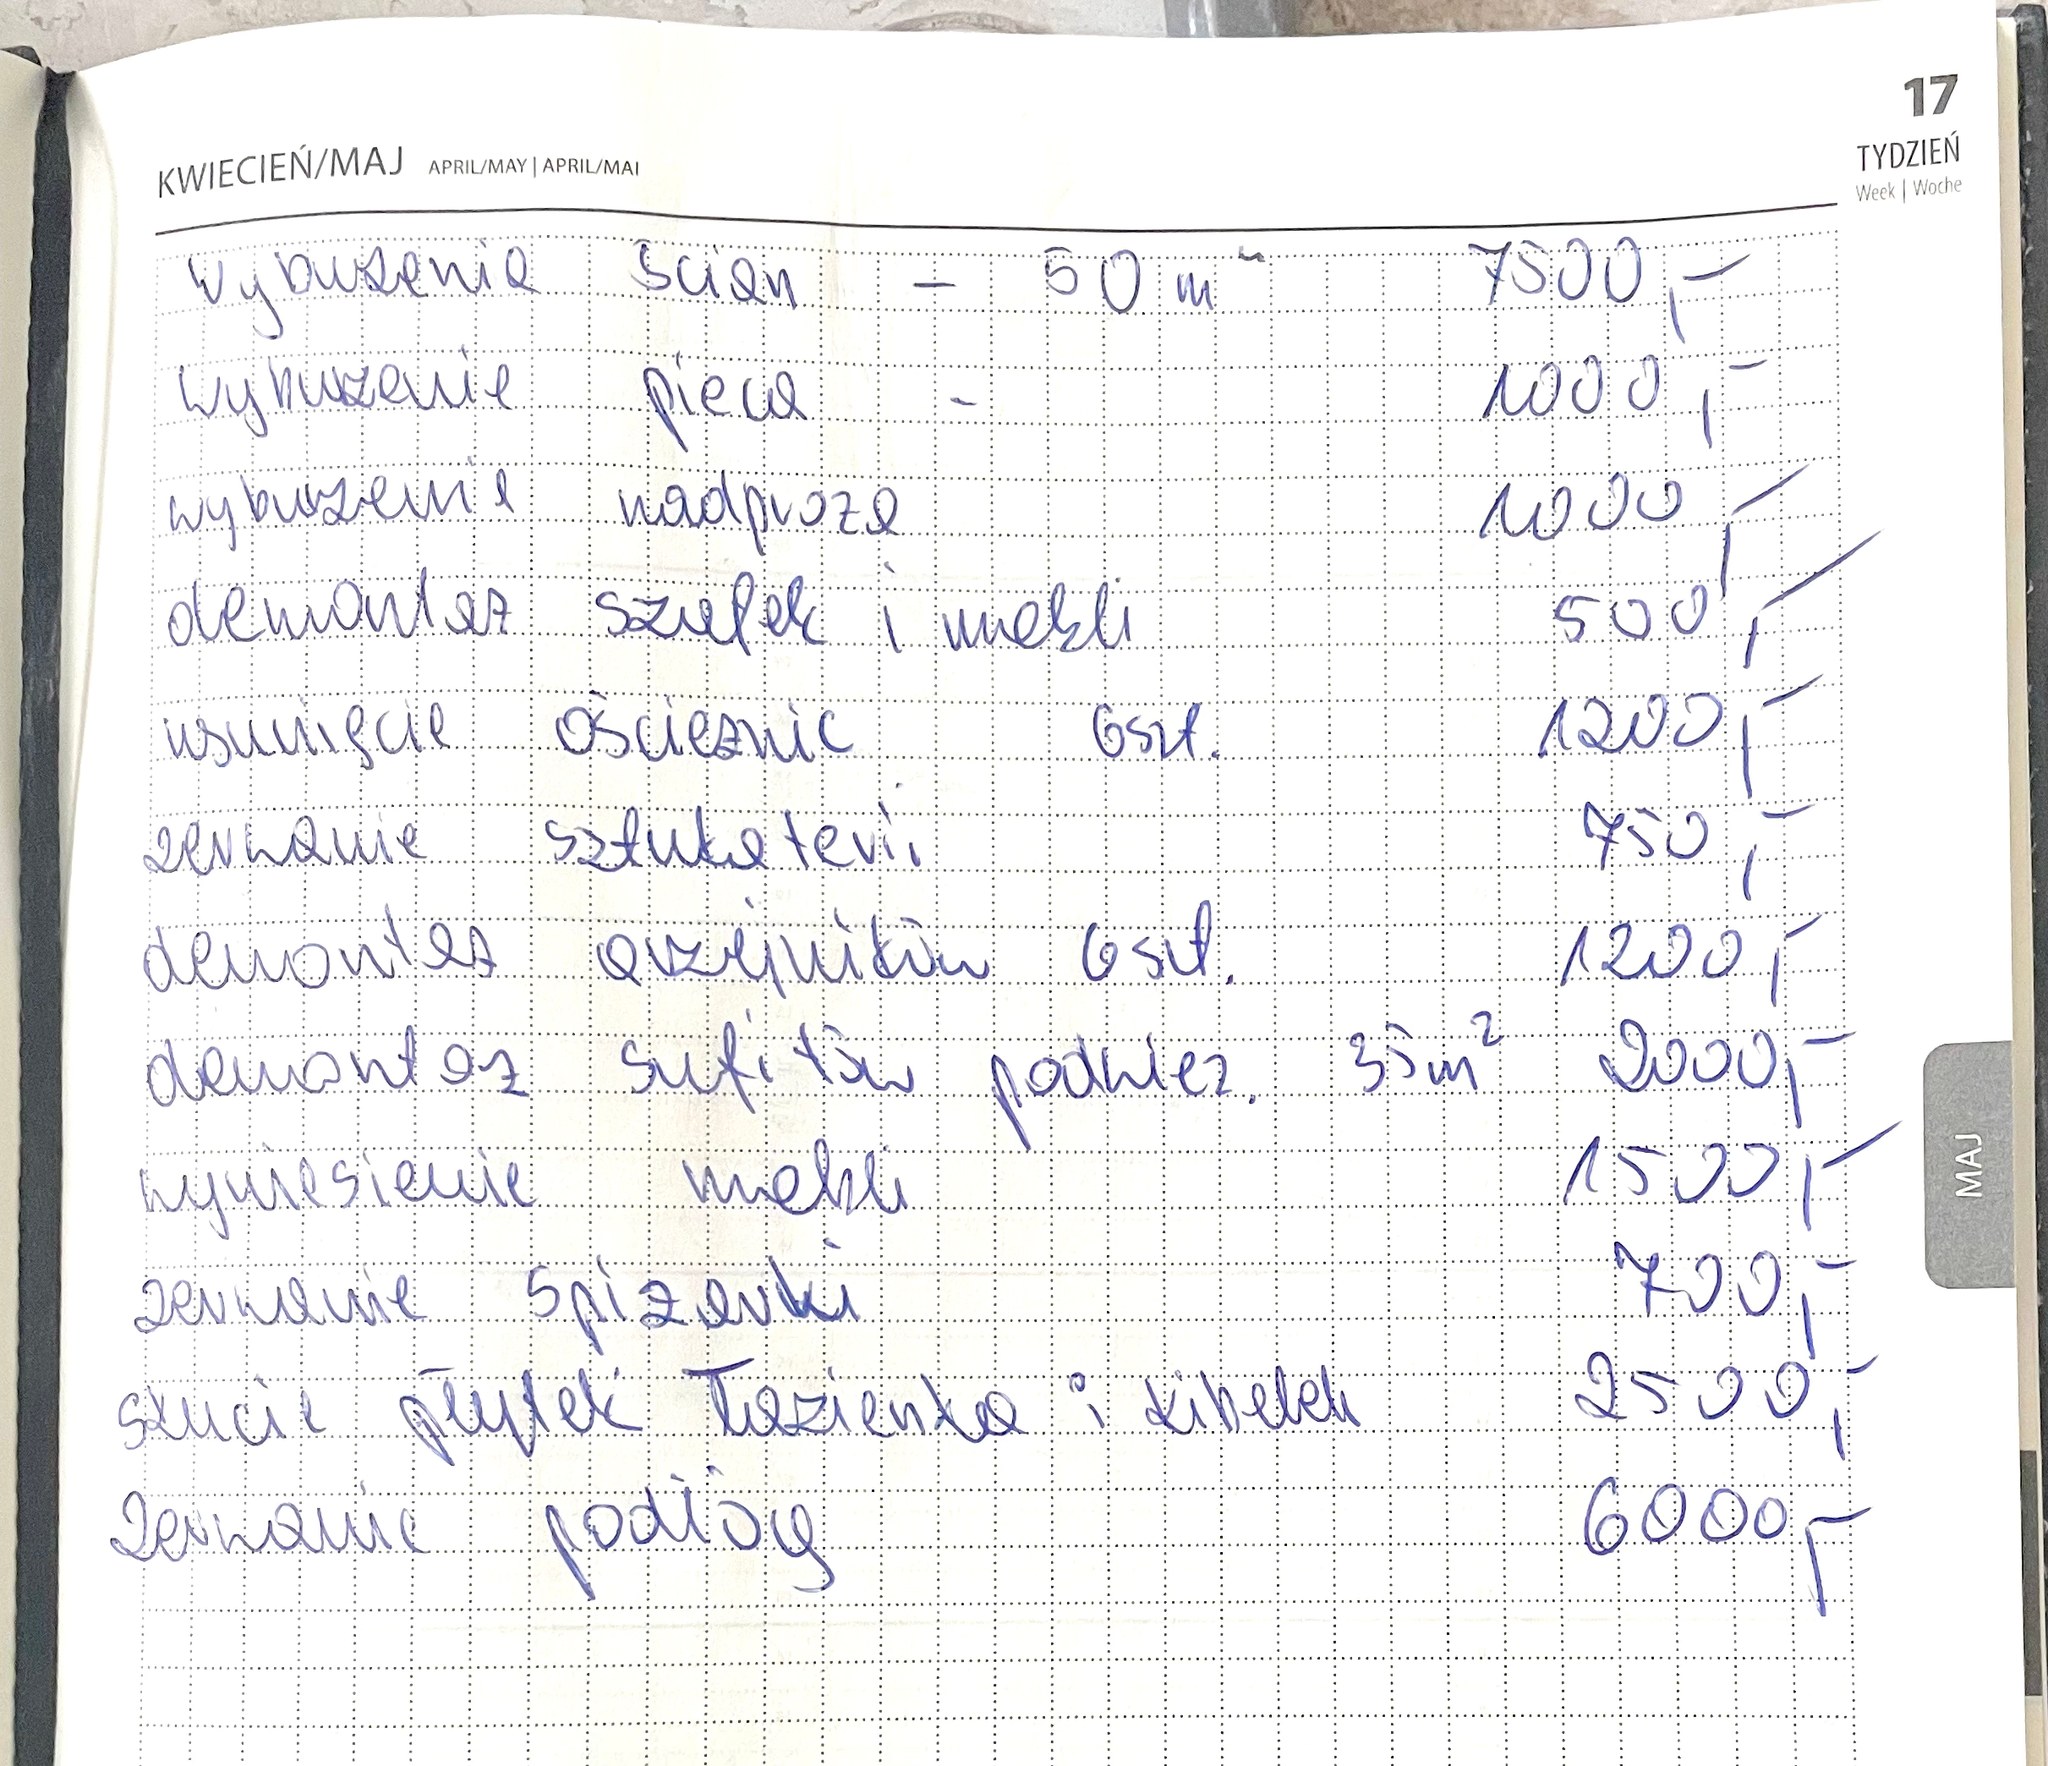 17
KWIECIEŃ/MAJ APRIL/MAY | APRIL/MAI
TYDZIEŃ
Week | Woche
wyburzenie ścian - 50 m² 7500,-
wyburzenie pieca - 1000,-
wyburzenie nadproża 1000,-
demontaż szafek i mebli 500,-
usunięcie ościeżnic 6szt. 1200,-
zerwanie sztukaterii 750,-
demontaż grzejników 6szt. 1200,-
demontaż sufitów podwiesz. 35m² 2000,-
wyniesienie mebli 1500,-
zerwanie spiżarki 700,-
skucie płytek łazienka i kibelek 2500,-
zerwanie podłóg 6000,-
MAJ